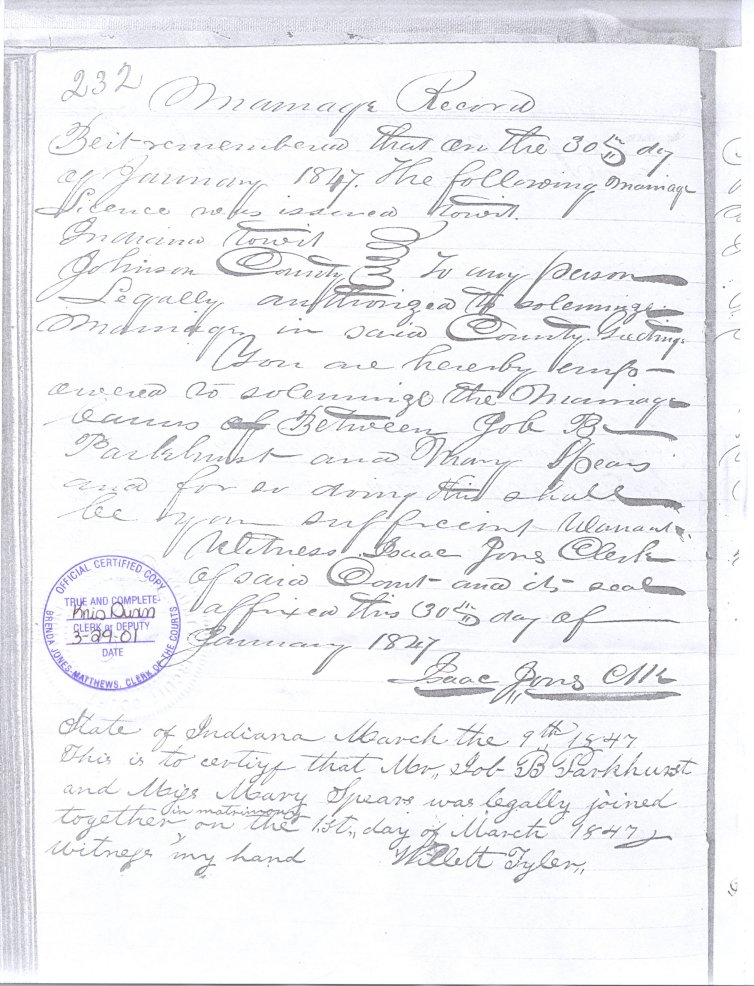 232
Marriage Record
Be it remembered that on the 30th day
of January 1847. The following Marriage
Licence was issued towit.
Indiana towit
Johnson County To any person
Legally authorized to solemnize
Marriage in said County. Greeting
You are hereby emp-
owered to solemnize the Marriage
of Between Job B
Parkhurst and Mary Spears
and for so doing this shall
be your sufficient Warrant.
Witness. Isaac Jones Clerk
of said Court and its seal
affixed this 30th day of
January 1847
Isaac Jones Clk
OFFICIAL CERTIFIED COPY
TRUE AND COMPLETE
Kris Dunn
CLERK or DEPUTY
3-29-01
DATE
BRENDA JONES-MATTHEWS, CLERK OF THE COURTS
State of Indiana March the 9th, 1847
This is to certify that Mr,, Job B Parkhurst
and Miss Mary Spears was legally joined
together in matrimony on the 1st,, day of March 1847
witness my hand Willett Tyler,,